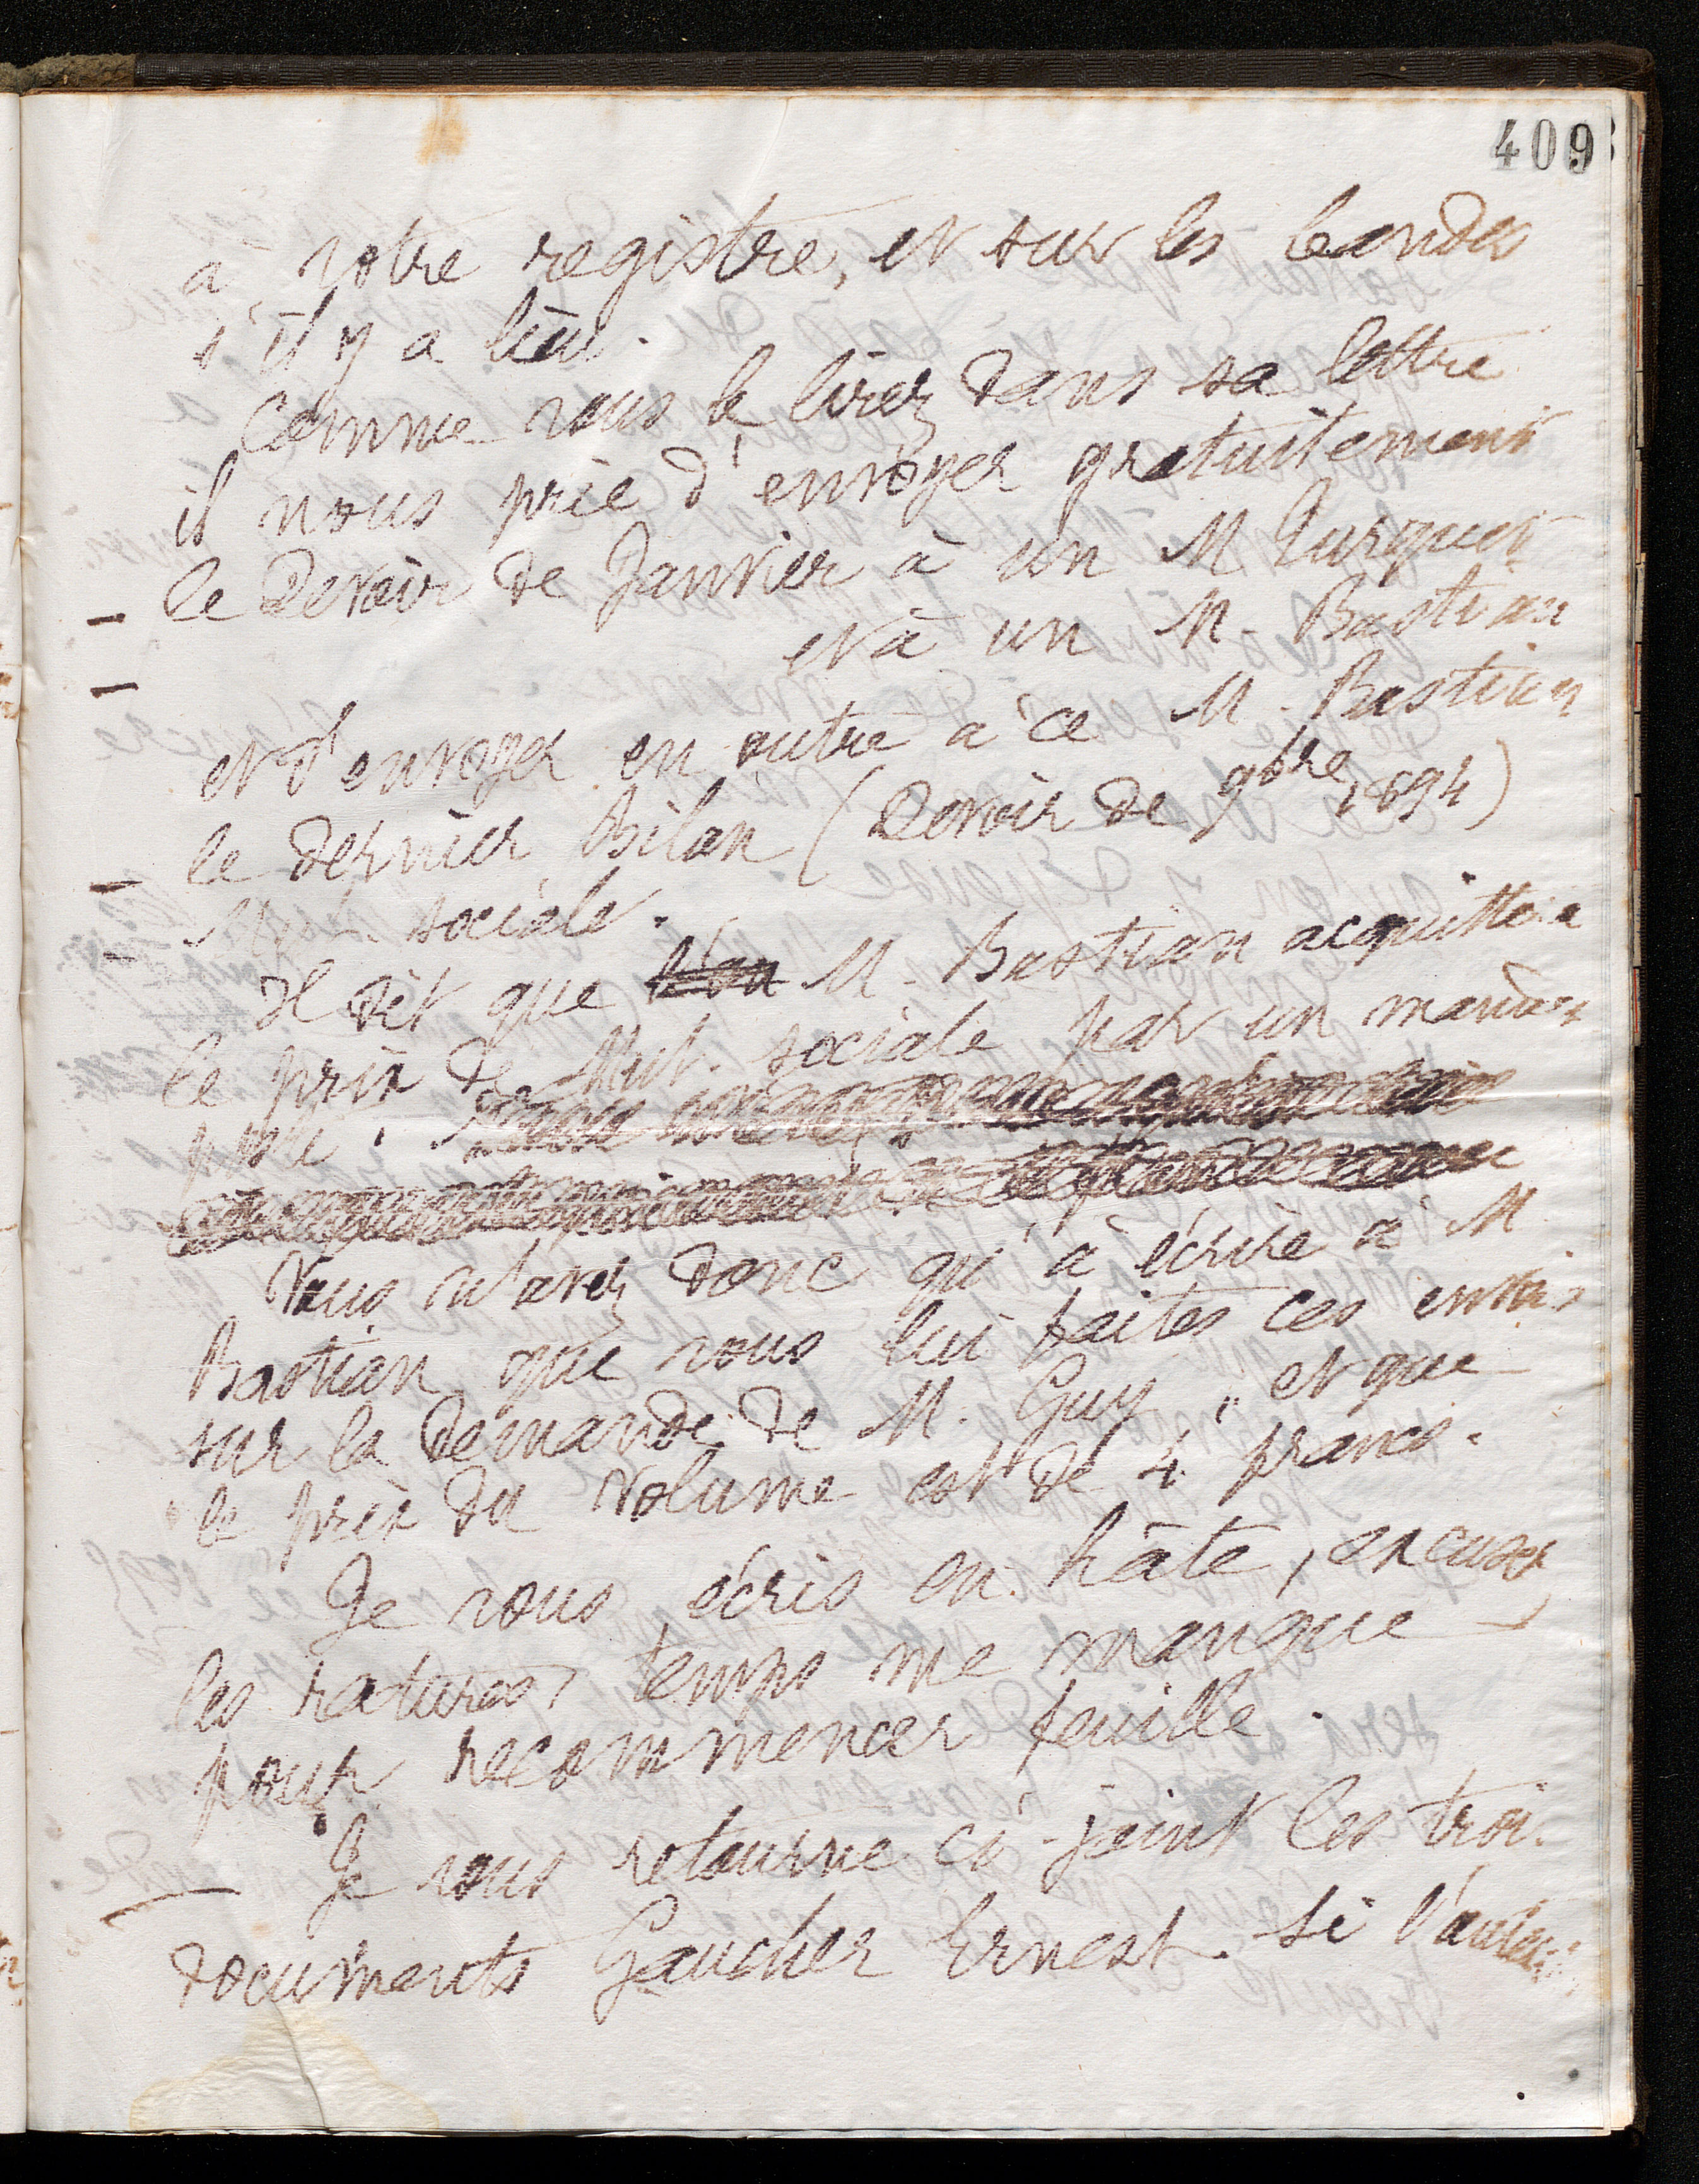 409
à votre registre, et sur les bandes
s'il y a lieu.
Comme vous le lirez dans sa lettre
il nous prie d'envoyer gratuitement
– le Devoir de Janvier à un M Turquet
– et à un M. Bastian
et d'envoyer en outre à ce M. Bastian
– le dernier Bilan (Devoir de 9bre 1894)
– Mut. sociale.
Il dit que M. Bastian acquittera
le prix de Mut. sociale par un mandat
poste.
Vous n'avez donc qu'à écrire à M
Bastian que vous lui faites ces envois
sur la demande de M. Guy, et que
le prix du volume est de 4 francs.
Je vous écris en hâte, excusez
les ratures, temps me manque
pour recommencer feuille.
– Je vous retourne ci-joint les trois
documents Gaucher Ernest. Si